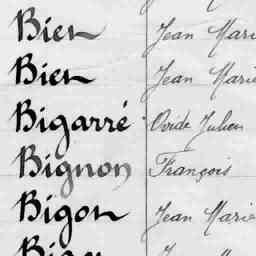 Bien Jean Mari
Bien Jean Marie
Bigarré Ovide Julien
Bignon François
Bigon Jean Marie